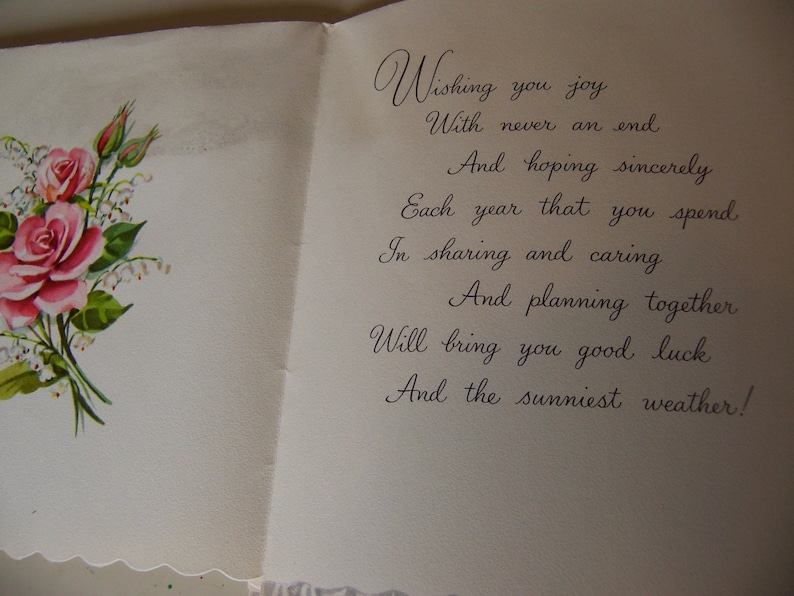 Wishing you joy
With never an end
And hoping sincerely
Each year that you spend
In sharing and caring
And planning together
Will bring you good luck
And the sunniest weather!